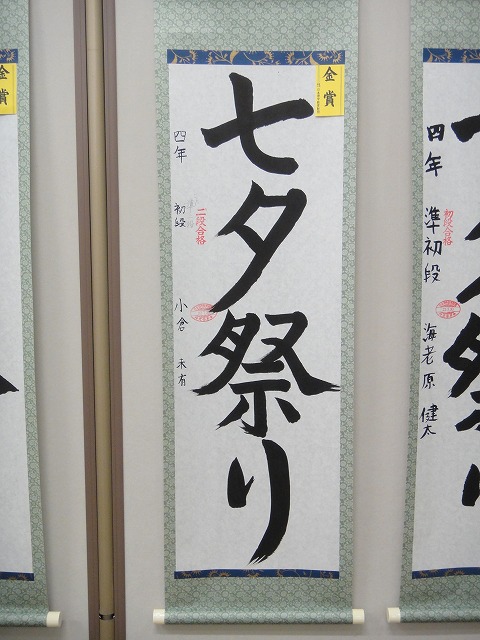 金賞
七夕祭り
四年 初段 小倉 未有
二段合格
金賞
四年 準初段 海老原 健太
初段合格